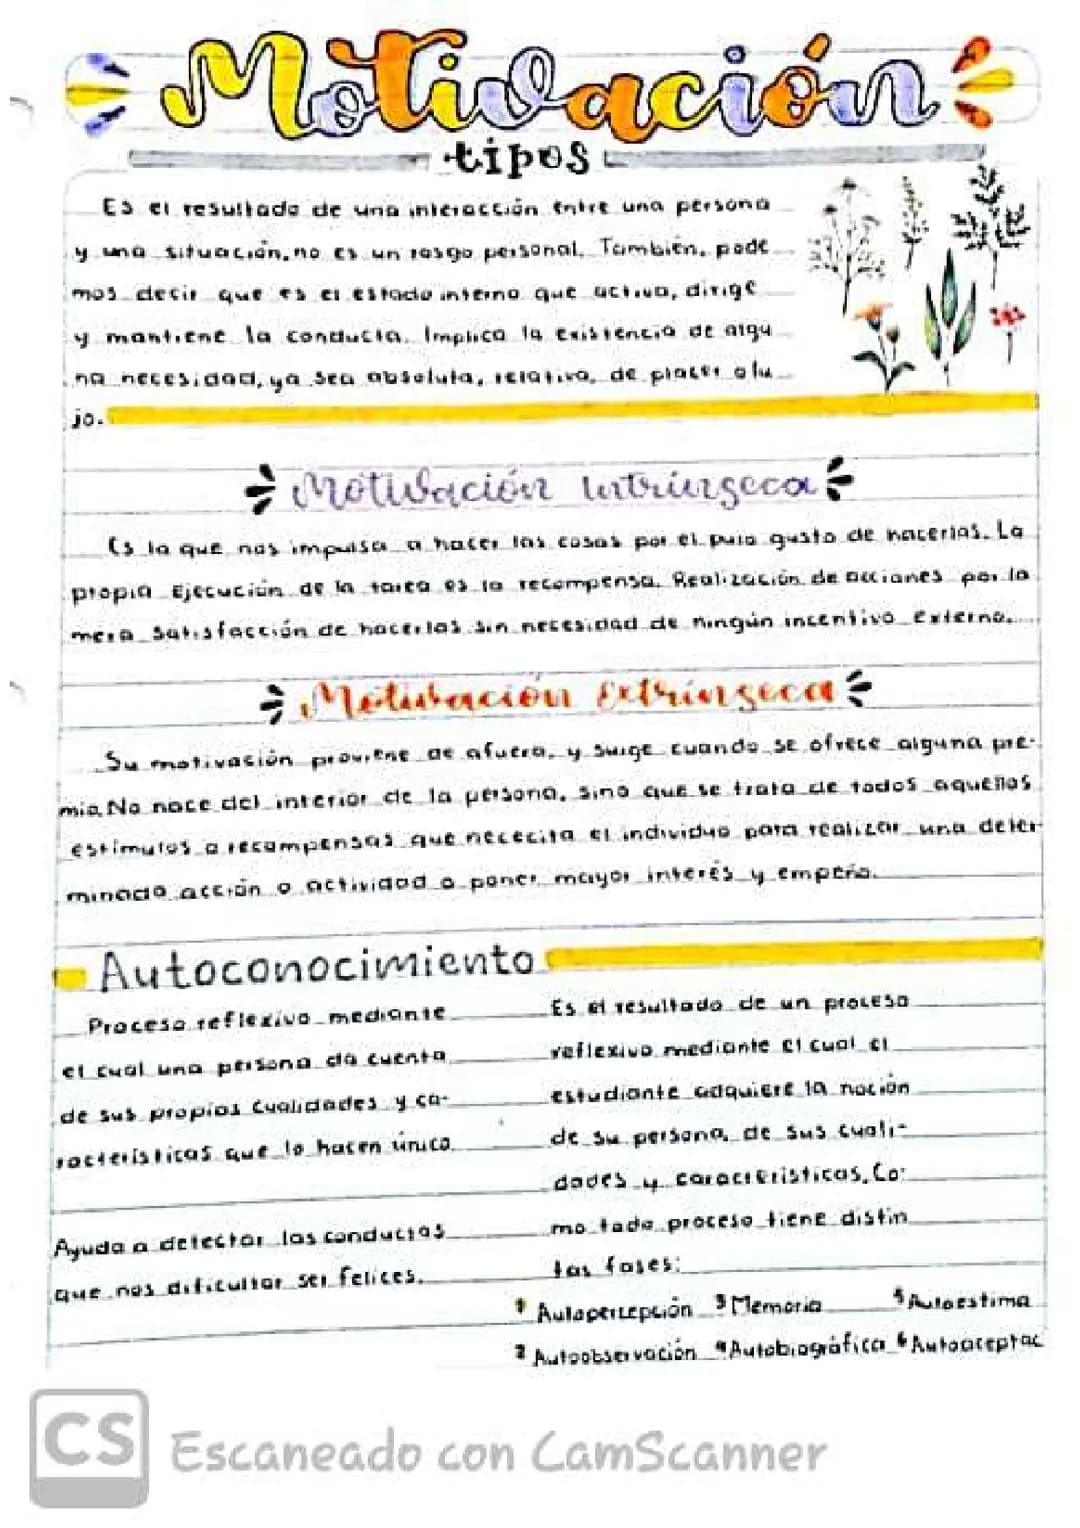 Motivación
tipos
Es el resultado de una interacción entre una persona
y una situación, no es un rasgo personal. También, pode
mos decir que es el estado interno que activa, dirige
y mantiene la conducta. Implica la existencia de algu
na necesidad, ya sea absoluta, relativa, de placer o lu
jo.
Motivación intrínseca
Es la que nos impulsa a hacer las cosas por el puro gusto de hacerlas. La
propia Ejecución de la tarea es la recompensa. Realización de acciones por la
mera satisfacción de hacerlas sin necesidad de ningún incentivo externo.
Motivación extrínseca
Su motivación proviene de afuera, y surge cuando se ofrece alguna pre-
mio. No nace del interior de la persona, sino que se trata de todos aquellos
estímulos o recompensas que nececita el individuo para realizar una deter-
minada acción o actividad o poner mayor interés y empeño.
Autoconocimiento
Proceso reflexivo mediante
el cual una persona da cuenta
de sus propios cualidades y ca-
racterísticas que lo hacen único
Ayuda a detectar las conductas
que nos dificultar ser felices.
Es el resultado de un proceso
reflexivo mediante el cual el
estudiante adquiere la noción
de su persona, de sus cuali-
dades y características. Co-
mo todo proceso tiene distin
tas fases:
1 Autopercepción 3 Memoria 5 Autoestima
2 Autoobservación 4 Autobiográfica 6 Autoaceptac
CS Escaneado con CamScanner